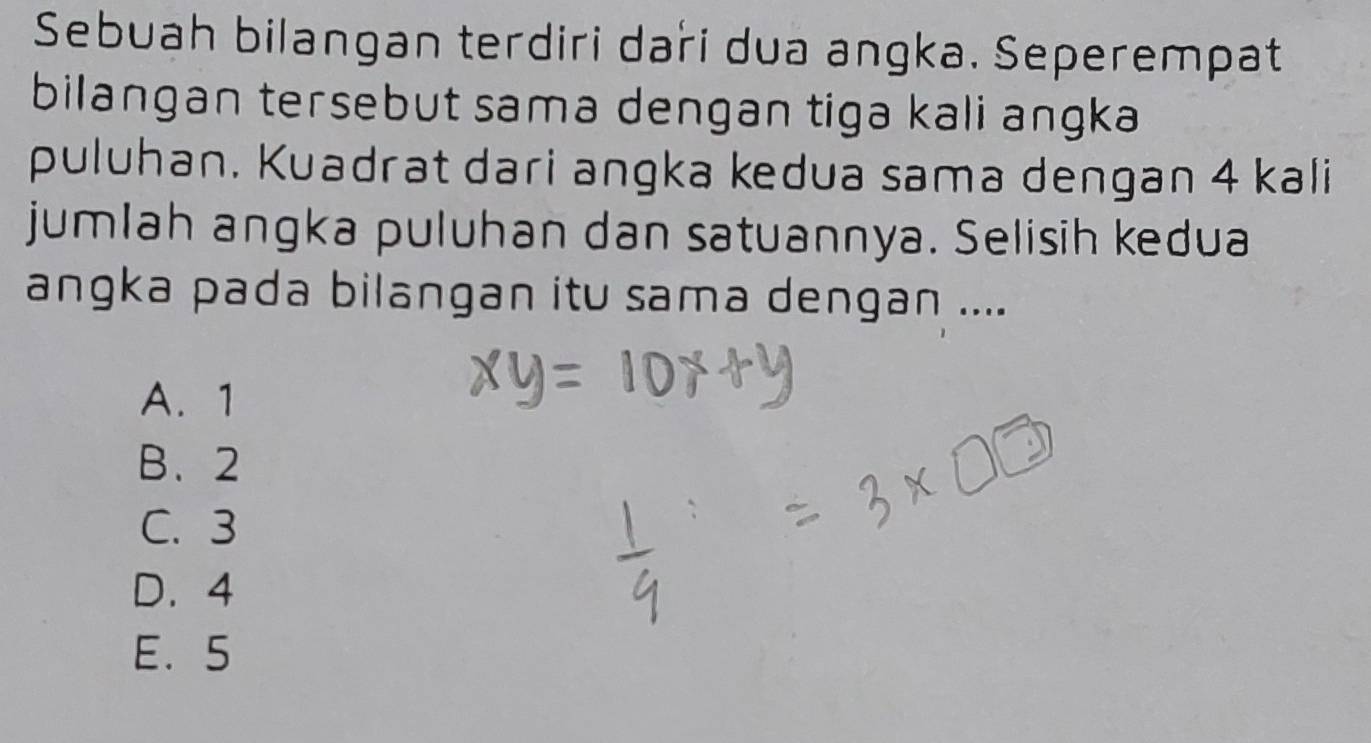 Sebuah bilangan terdiri dari dua angka. Seperempat
bilangan tersebut sama dengan tiga kali angka
puluhan. Kuadrat dari angka kedua sama dengan 4 kali
jumlah angka puluhan dan satuannya. Selisih kedua
angka pada bilangan itu sama dengan ....
xy = 10x + y
A. 1
B. 2
C. 3
D. 4
E. 5
1/4 = 3 x